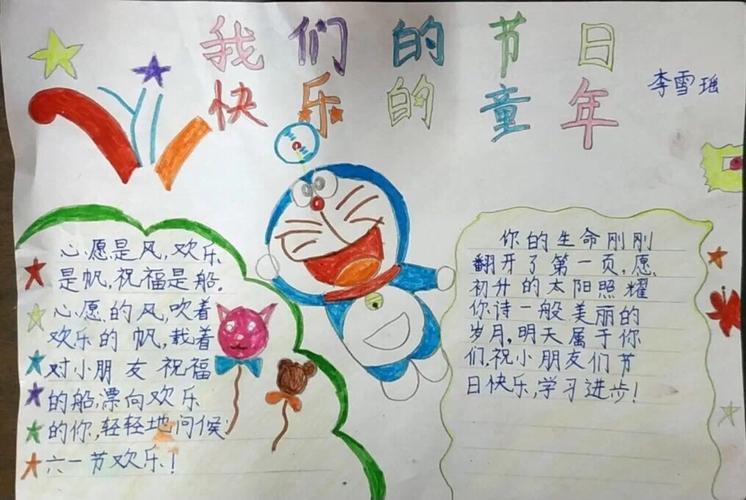 我们的节日
快乐的童年
李雪瑶
心愿是风,欢乐
是帆,祝福是船.
心愿的风,吹着
欢乐的帆,载着
对小朋友祝福
的船,漂向欢乐
的你,轻轻地问候
六一节欢乐!
你的生命刚刚
翻开了第一页,愿
初升的太阳照耀
你诗一般美丽的
岁月,明天属于你
们,祝小朋友们节
日快乐,学习进步!